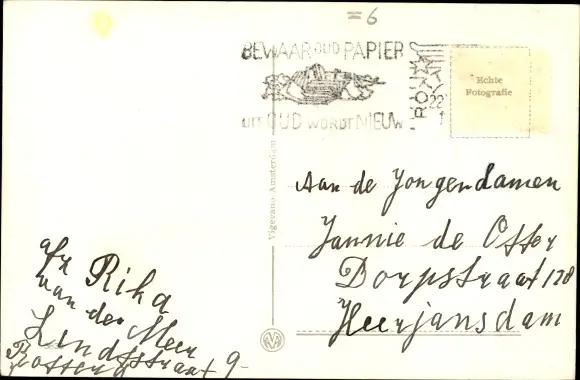 = 6
BEWAAR OUD PAPIER
UIT OUD WORDT NIEUW
22
Echte
Fotografie
Vigevano-Amsterdam
Aan de Jongendamen
Jannie de Otter
Dorpstraat 128
Heerjansdam
afz Rika
van der Meer
9-